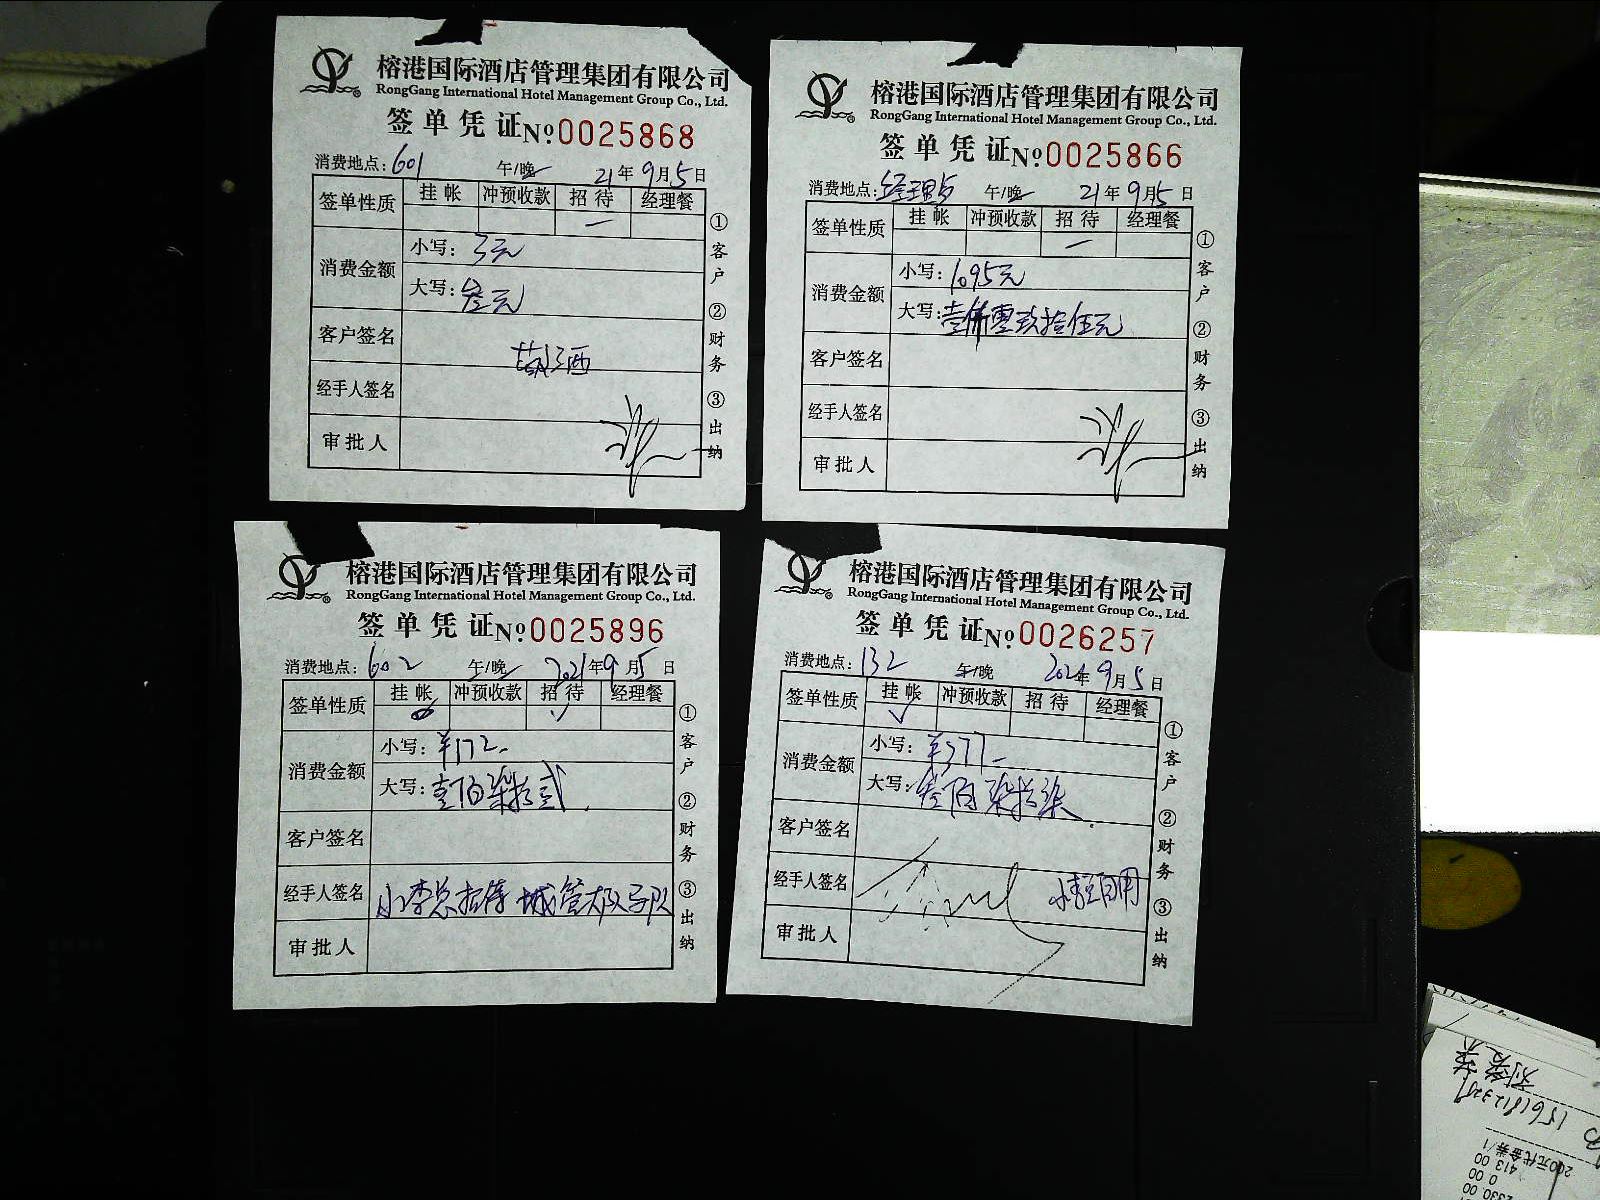 榕港国际酒店管理集团有限公司
RongGang International Hotel Management Group Co., Ltd.
签单凭证 No 0025868
消费地点: 601 午/晚 21年9月5日
签单性质 挂帐 冲预收款 招待 经理餐
消费金额 小写: 3元
大写: 叁元
客户签名
经手人签名
审批人
①客户 ②财务 ③出纳
榕港国际酒店管理集团有限公司
RongGang International Hotel Management Group Co., Ltd.
签单凭证 No 0025866
消费地点: 经理 午/晚 21年9月5日
签单性质 挂帐 冲预收款 招待 经理餐
消费金额 小写: 1095元
大写: 壹仟零玖拾伍元
客户签名
经手人签名
审批人
①客户 ②财务 ③出纳
榕港国际酒店管理集团有限公司
RongGang International Hotel Management Group Co., Ltd.
签单凭证 No 0025896
消费地点: 602 午/晚 2021年9月5日
签单性质 挂帐 冲预收款 招待 经理餐
消费金额 小写: ¥172-
大写: 壹佰柒拾贰
客户签名
经手人签名 小李总招待 城管大队
审批人
①客户 ②财务 ③出纳
榕港国际酒店管理集团有限公司
RongGang International Hotel Management Group Co., Ltd.
签单凭证 No 0026257
消费地点: 132 午/晚 2021年9月5日
签单性质 挂帐 冲预收款 招待 经理餐
消费金额 小写: ¥377-
大写: 叁佰柒拾柒
客户签名
经手人签名 自用
审批人
①客户 ②财务 ③出纳
15618123209
200元代金券/1
413.00
0.00